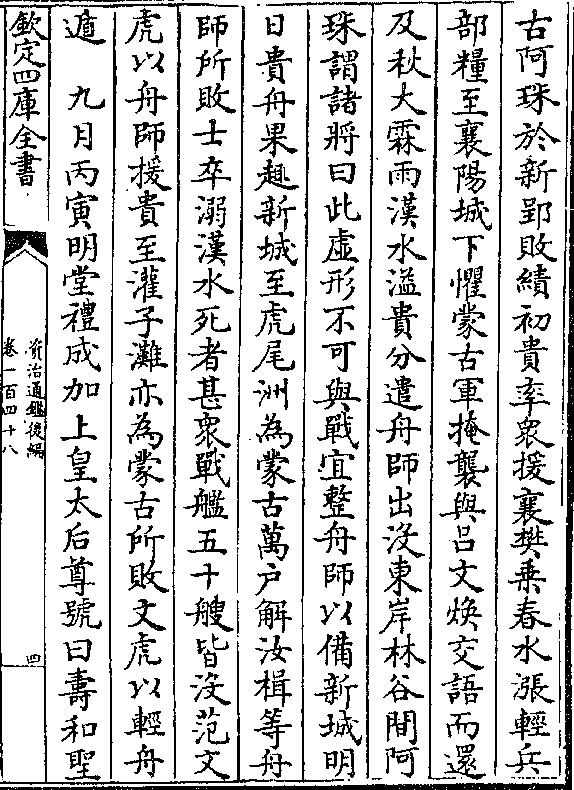 古阿珠於新郢敗績初貴率衆援襄樊乗春水漲輕兵
部糧至襄陽城下懼蒙古軍掩襲與吕文煥交語而還
及秋大霖雨漢水溢貴分遣舟師出没東岸林谷間阿
珠謂諸將曰此虚形不可與戰宜整舟師以備新城明
日貴舟果趣新城至虎尾洲為蒙古萬户解汝楫等舟
師所敗士卒溺漢水死者甚衆戰艦五十艘皆没范文
虎以舟師援貴至灌子灘亦為蒙古所敗文虎以輕舟
遁　九月丙寅明堂禮成加上皇太后尊號曰壽和聖
欽定四庫全書
資治通鑑後編
卷一百四十八
四